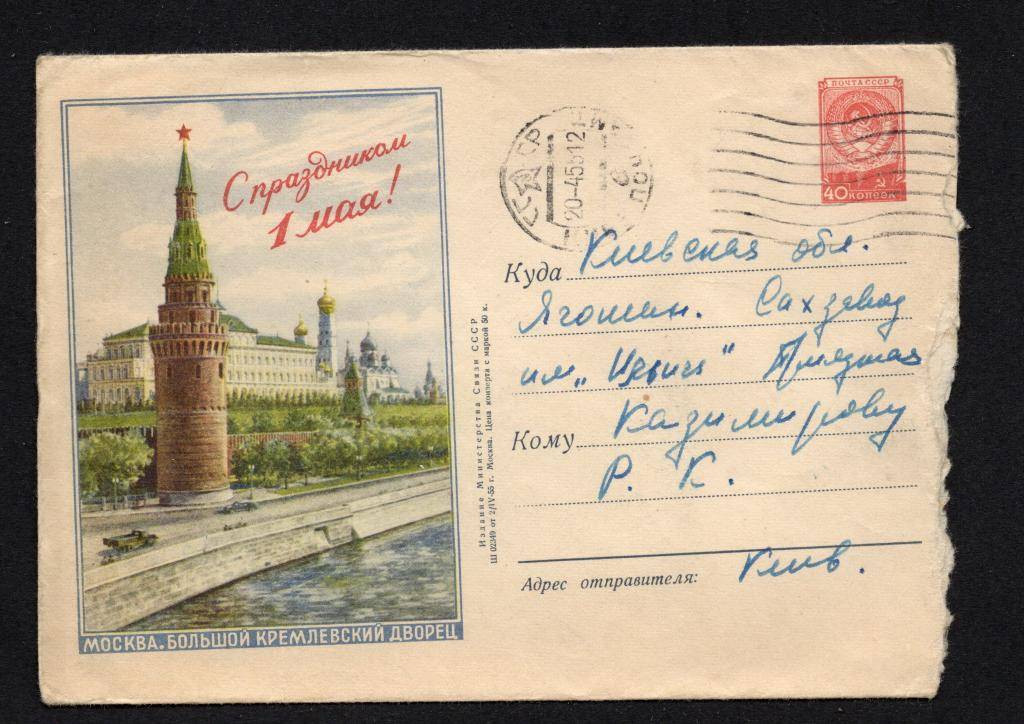 С праздником
1 мая!
МОСКВА. БОЛЬШОЙ КРЕМЛЕВСКИЙ ДВОРЕЦ
Издание Министерства Связи СССР
Ш 02349 от 2/IV-55 г. Москва. Цена конверта с маркой 50 к.
СССР
20-45512
ПОЧТА СССР
40 КОПЕЕК
Куда Киевская обл.
Яготин. Сахзавод
им „Ильича"
Кому Казимирову
Р. К.
Адрес отправителя: Киев.